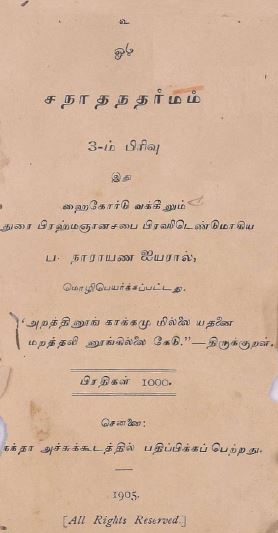 உ
ஓம்
சநாதநதர்மம்
3-ம் பிரிவு
இது
ஹைகோர்டு வக்கீலும்
துரை பிரஹ்மஞானசபை பிரஸிடெண்டுமாகிய
ப. நாராயண ஐயரால்,
மொழிபெயர்க்கப்பட்டது.
"அறத்தினூங் காக்கமு மில்லை யதனை
மறத்தலி னூங்கில்லை கேடு."—திருக்குறள்.
பிரதிகள் 1000.
சென்னை:
அச்சுக்கூடத்தில் பதிப்பிக்கப் பெற்றது.
1905.
[All Rights Reserved.]